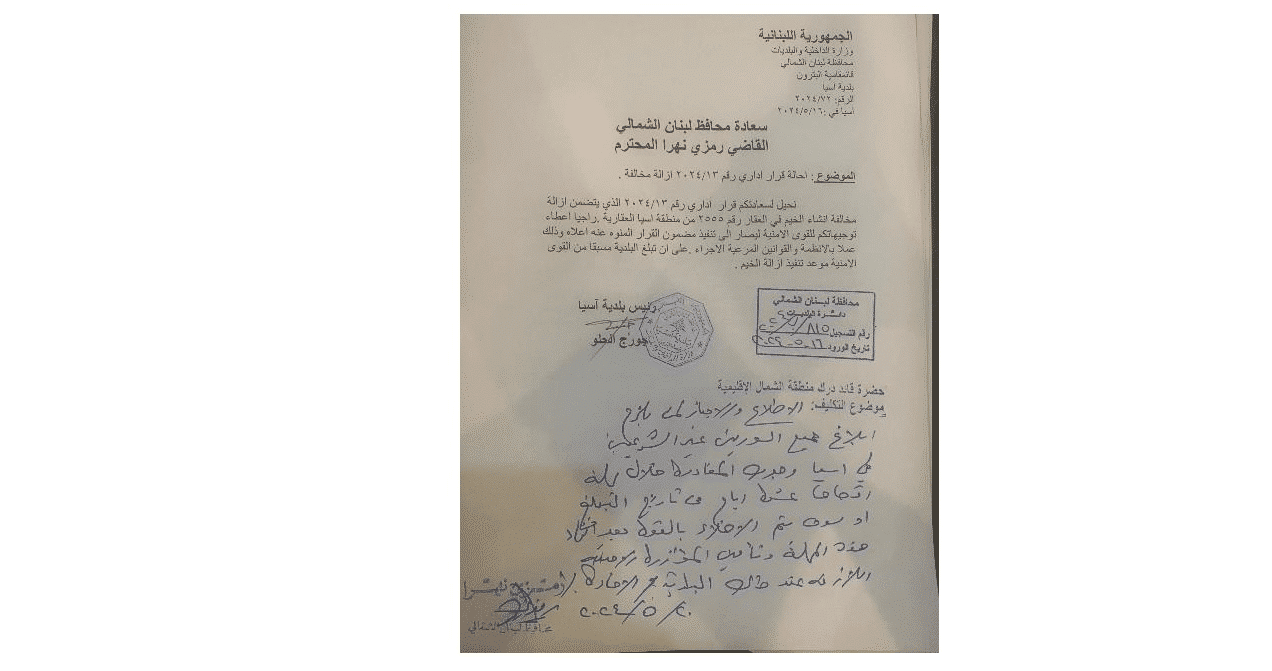 الجمهورية اللبنانية
وزارة الداخلية والبلديات
محافظة لبنان الشمالي
قائمقامية البترون
بلدية اسيا
الرقم: ٢٠٢٤/٧٢
اسيا في :٢٠٢٤/٥/١٦
سعادة محافظ لبنان الشمالي
القاضي رمزي نهرا المحترم
الموضوع : احالة قرار اداري رقم ٢٠٢٤/١٣ ازالة مخالفة .
نحيل لسعادتكم قرار اداري رقم ٢٠٢٤/١٣ الذي يتضمن ازالة
مخالفة انشاء الخيم في العقار رقم ٢٥٥٥ من منطقة اسيا العقارية .راجيا اعطاء
توجيهاتكم للقوى الامنية ليصار الى تنفيذ مضمون القرار المنوه عنه اعلاه وذلك
عملا بالانظمة والقوانين المرعية الاجراء .على ان تبلغ البلدية مسبقا من القوى
الامنية موعد تنفيذ ازالة الخيم .
رئيس بلدية آسيا
جورج النطو
محافظة لبنان الشمالي
دائرة البلديات
رقم التسجيل
تاريخ الورود ١٦-٥-٢٠٢٤
حضرة قائد درك منطقة الشمال الإقليمية
موضوع التكليف: الاطلاع والايجاز لمن يلزم
ابلاغ جميع السوريين غير الشرعيين
في اسيا وجوب المغادرة خلال مهلة
اقصاها عشرة ايام من تاريخ التبلغ
او سوف يتم الاخلاء بالقوة بعد
هذه المهلة وتأمين المؤازرة الامنية
اللازمة عند طلب البلدية مع الافادة
٢٠٢٤/٥/٢٠
رمزي نهرا
محافظ لبنان الشمالي